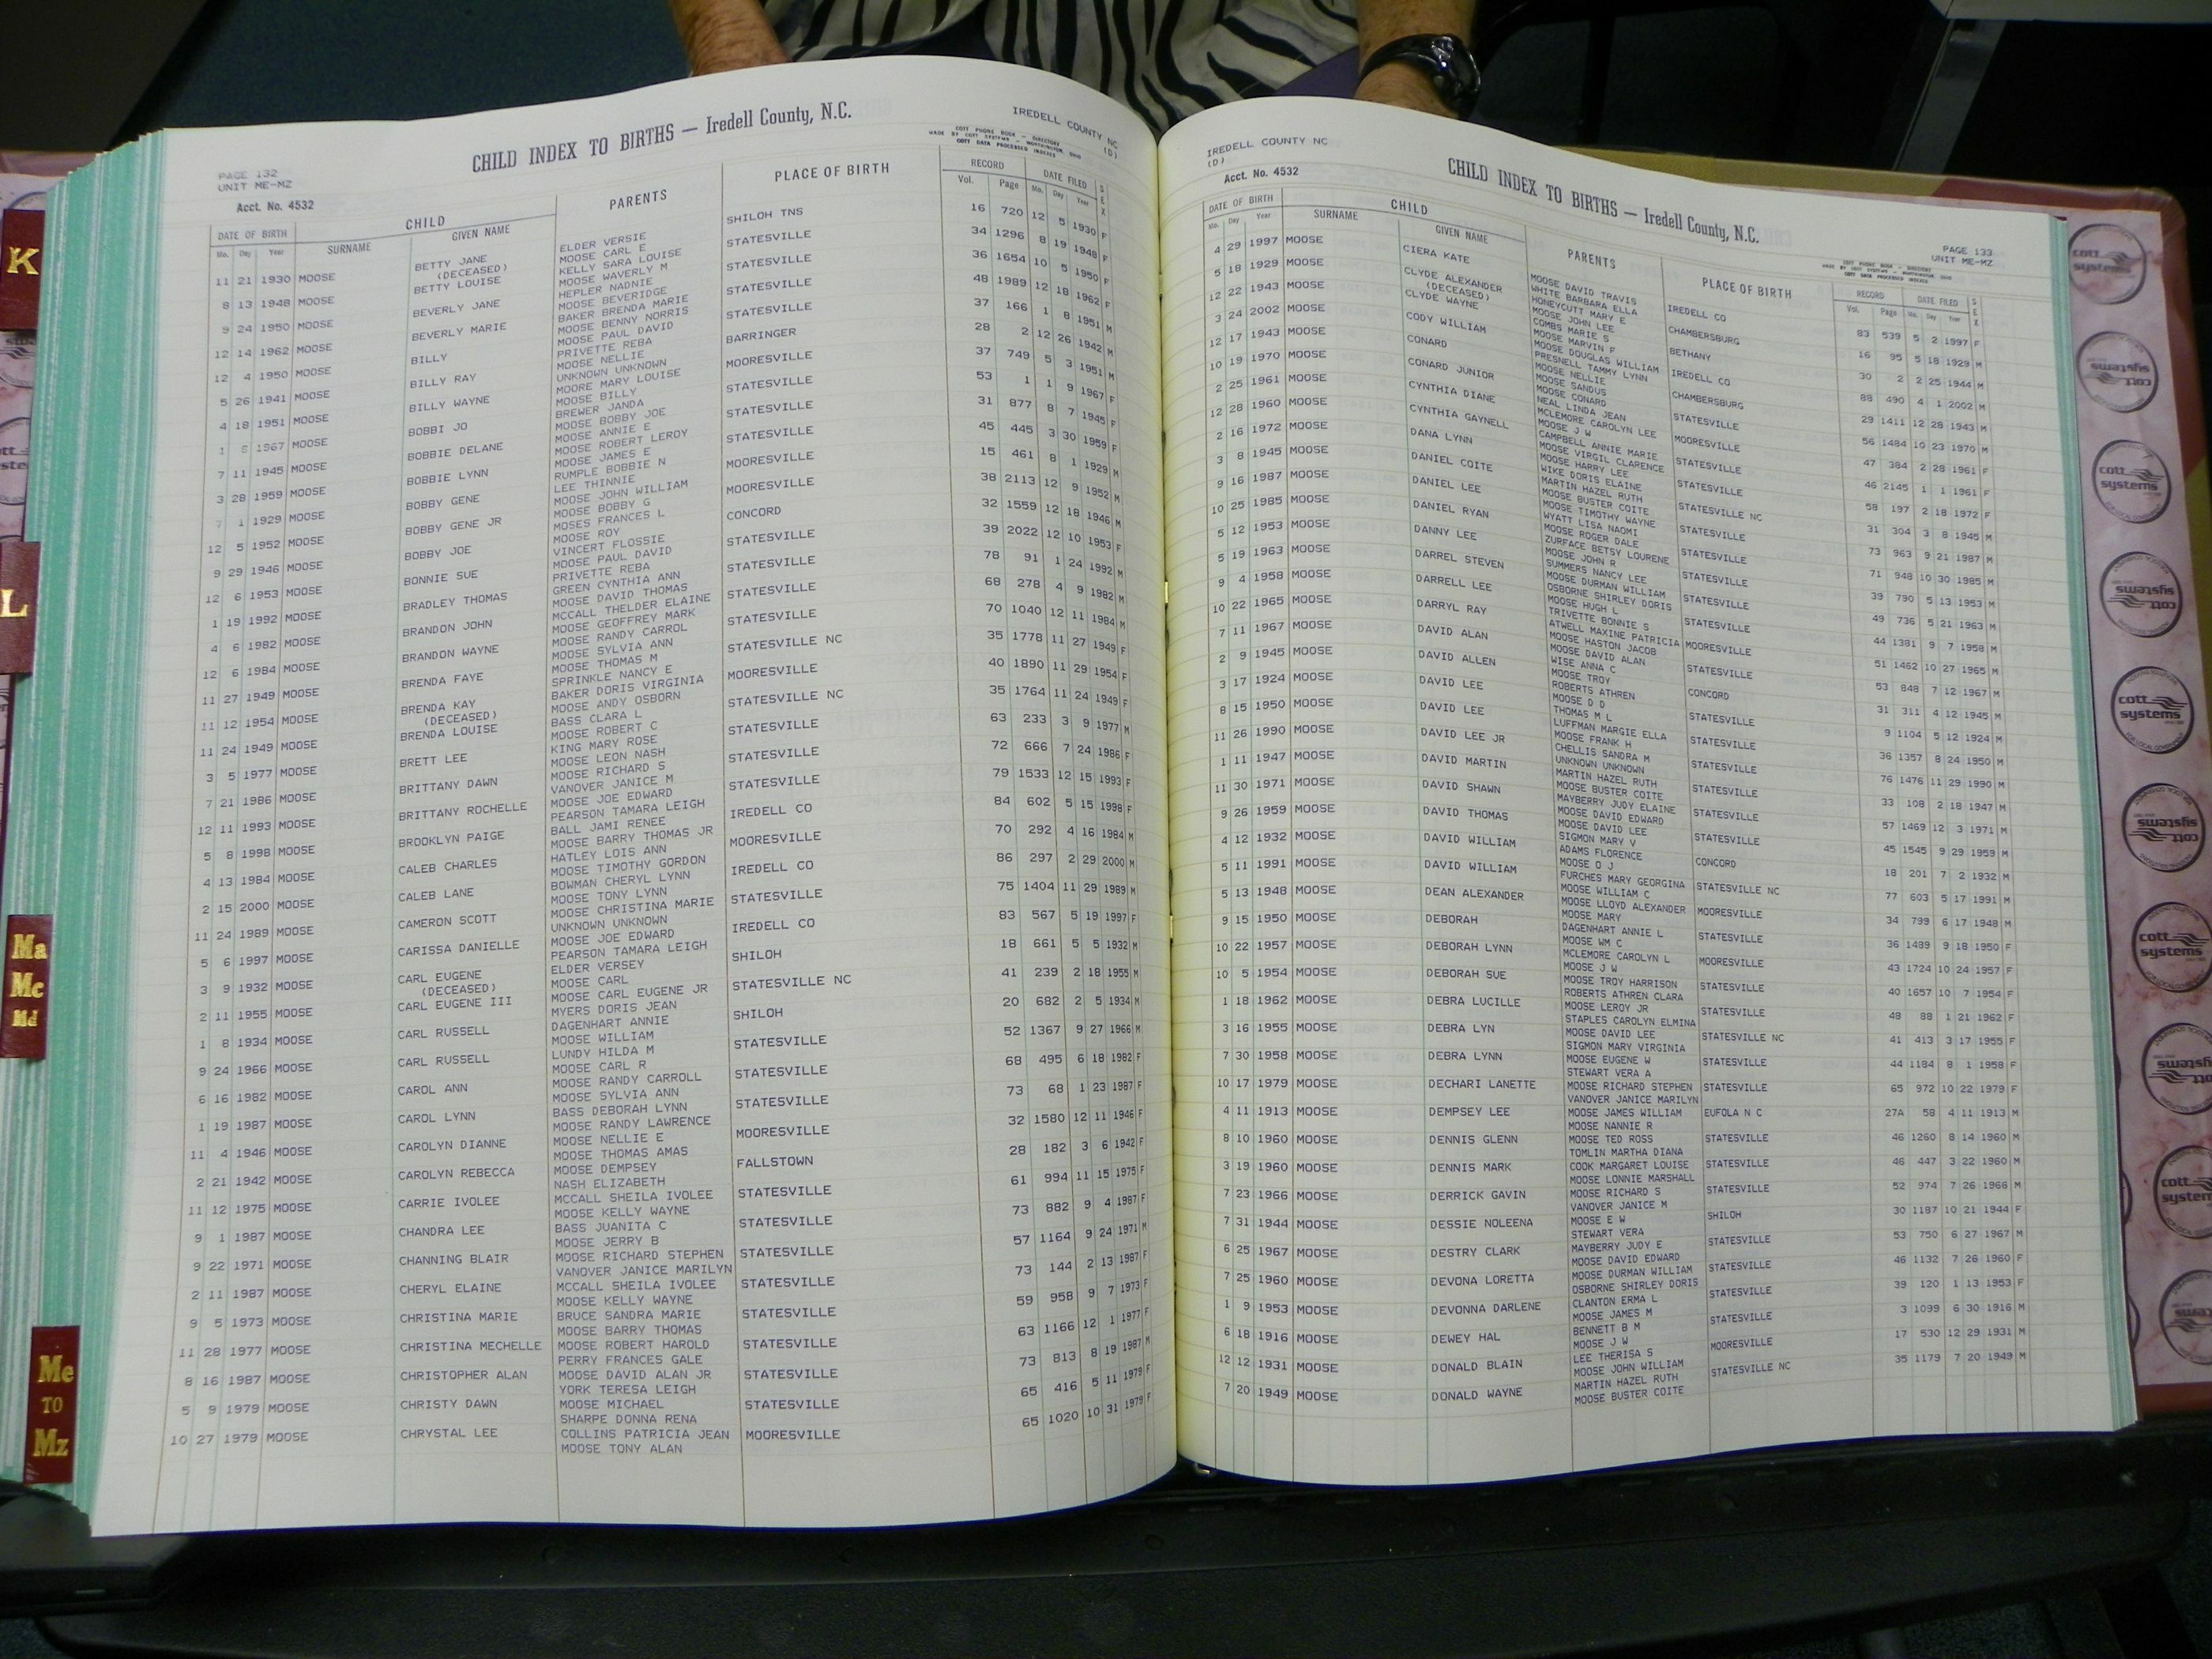 CHILD INDEX TO BIRTHS — Iredell County, N.C.
IREDELL COUNTY NC
(D)
COTT PHONE BOOK — DIRECTORY
MADE BY COTT SYSTEMS — WORTHINGTON, OHIO
COTT DATA PROCESSED INDEXES
PAGE 132
UNIT ME-MZ
Acct. No. 4532
DATE OF BIRTH CHILD PARENTS PLACE OF BIRTH RECORD DATE FILED SEX
Mo. Day Year SURNAME GIVEN NAME Vol. Page Mo. Day Year
11 21 1930 MOOSE BETTY JANE ELDER VERSIE SHILOH TNS 16 720 12 5 1930 F
(DECEASED) MOOSE CARL E
8 13 1948 MOOSE BETTY LOUISE KELLY SARA LOUISE STATESVILLE 34 1296 8 19 1948 F
MOOSE WAVERLY M
9 24 1950 MOOSE BEVERLY JANE HEPLER NADNIE STATESVILLE 36 1654 10 5 1950 F
MOOSE BEVERIDGE
12 14 1962 MOOSE BEVERLY MARIE BAKER BRENDA MARIE STATESVILLE 48 1989 12 18 1962 F
MOOSE BENNY NORRIS
12 4 1950 MOOSE BILLY MOOSE PAUL DAVID STATESVILLE 37 166 1 8 1951 M
PRIVETTE REBA
5 26 1941 MOOSE BILLY RAY MOOSE NELLIE BARRINGER 28 2 12 26 1942 M
UNKNOWN UNKNOWN
4 18 1951 MOOSE BILLY WAYNE MOORE MARY LOUISE MOORESVILLE 37 749 5 3 1951 M
MOOSE BILLY
1 6 1967 MOOSE BOBBI JO BREWER JANDA STATESVILLE 53 1 1 9 1967 F
MOOSE BOBBY JOE
7 11 1945 MOOSE BOBBIE DELANE MOOSE ANNIE E STATESVILLE 31 877 8 7 1945 F
MOOSE ROBERT LEROY
3 28 1959 MOOSE BOBBIE LYNN MOOSE JAMES E STATESVILLE 45 445 3 30 1959 F
RUMPLE BOBBIE N
7 1 1929 MOOSE BOBBY GENE LEE THINNIE MOORESVILLE 15 461 8 1 1929 M
MOOSE JOHN WILLIAM
12 5 1952 MOOSE BOBBY GENE JR MOOSE BOBBY G MOORESVILLE 38 2113 12 9 1952 M
MOSES FRANCES L
9 29 1946 MOOSE BOBBY JOE MOOSE ROY CONCORD 32 1559 12 18 1946 M
VINCERT FLOSSIE
12 6 1953 MOOSE BONNIE SUE MOOSE PAUL DAVID STATESVILLE 39 2022 12 10 1953 F
PRIVETTE REBA
1 19 1992 MOOSE BRADLEY THOMAS GREEN CYNTHIA ANN STATESVILLE 78 91 1 24 1992 M
MOOSE DAVID THOMAS
4 6 1982 MOOSE BRANDON JOHN MCCALL THELDER ELAINE STATESVILLE 68 278 4 9 1982 M
MOOSE GEOFFREY MARK
12 6 1984 MOOSE BRANDON WAYNE MOOSE RANDY CARROL STATESVILLE 70 1040 12 11 1984 M
MOOSE SYLVIA ANN
11 27 1949 MOOSE BRENDA FAYE MOOSE THOMAS M STATESVILLE NC 35 1778 11 27 1949 F
SPRINKLE NANCY E
11 12 1954 MOOSE BRENDA KAY BAKER DORIS VIRGINIA MOORESVILLE 40 1890 11 29 1954 F
(DECEASED) MOOSE ANDY OSBORN
11 24 1949 MOOSE BRENDA LOUISE BASS CLARA L STATESVILLE NC 35 1764 11 24 1949 F
MOOSE ROBERT C
3 5 1977 MOOSE BRETT LEE KING MARY ROSE STATESVILLE 63 233 3 9 1977 M
MOOSE LEON NASH
7 21 1986 MOOSE BRITTANY DAWN MOOSE RICHARD S STATESVILLE 72 666 7 24 1986 F
VANOVER JANICE M
12 11 1993 MOOSE BRITTANY ROCHELLE MOOSE JOE EDWARD STATESVILLE 79 1533 12 15 1993 F
PEARSON TAMARA LEIGH
5 8 1998 MOOSE BROOKLYN PAIGE BALL JAMI RENEE IREDELL CO 84 602 5 15 1998 F
MOOSE BARRY THOMAS JR
4 13 1984 MOOSE CALEB CHARLES HATLEY LOIS ANN MOORESVILLE 70 292 4 16 1984 M
MOOSE TIMOTHY GORDON
2 15 2000 MOOSE CALEB LANE BOWMAN CHERYL LYNN IREDELL CO 86 297 2 29 2000 M
MOOSE TONY LYNN
11 24 1989 MOOSE CAMERON SCOTT MOOSE CHRISTINA MARIE STATESVILLE 75 1404 11 29 1989 M
UNKNOWN UNKNOWN
5 6 1997 MOOSE CARISSA DANIELLE MOOSE JOE EDWARD IREDELL CO 83 567 5 19 1997 F
PEARSON TAMARA LEIGH
3 9 1932 MOOSE CARL EUGENE ELDER VERSEY SHILOH 18 661 5 5 1932 M
(DECEASED) MOOSE CARL
2 11 1955 MOOSE CARL EUGENE III MOOSE CARL EUGENE JR STATESVILLE NC 41 239 2 18 1955 M
MYERS DORIS JEAN
1 8 1934 MOOSE CARL RUSSELL DAGENHART ANNIE SHILOH 20 682 2 5 1934 M
MOOSE WILLIAM
9 24 1966 MOOSE CARL RUSSELL LUNDY HILDA M STATESVILLE 52 1367 9 27 1966 M
MOOSE CARL R
6 16 1982 MOOSE CAROL ANN MOOSE RANDY CARROLL STATESVILLE 68 495 6 18 1982 F
MOOSE SYLVIA ANN
1 19 1987 MOOSE CAROL LYNN BASS DEBORAH LYNN STATESVILLE 73 68 1 23 1987 F
MOOSE RANDY LAWRENCE
11 4 1946 MOOSE CAROLYN DIANNE MOOSE NELLIE E MOORESVILLE 32 1580 12 11 1946 F
MOOSE THOMAS AMAS
2 21 1942 MOOSE CAROLYN REBECCA MOOSE DEMPSEY FALLSTOWN 28 182 3 6 1942 F
NASH ELIZABETH
11 12 1975 MOOSE CARRIE IVOLEE MCCALL SHEILA IVOLEE STATESVILLE 61 994 11 15 1975 F
MOOSE KELLY WAYNE
9 1 1987 MOOSE CHANDRA LEE BASS JUANITA C STATESVILLE 73 882 9 4 1987 F
MOOSE JERRY B
9 22 1971 MOOSE CHANNING BLAIR MOOSE RICHARD STEPHEN STATESVILLE 57 1164 9 24 1971 M
VANOVER JANICE MARILYN
2 11 1987 MOOSE CHERYL ELAINE MCCALL SHEILA IVOLEE STATESVILLE 73 144 2 13 1987 F
MOOSE KELLY WAYNE
9 5 1973 MOOSE CHRISTINA MARIE BRUCE SANDRA MARIE STATESVILLE 59 958 9 7 1973 F
MOOSE BARRY THOMAS
11 28 1977 MOOSE CHRISTINA MECHELLE MOOSE ROBERT HAROLD STATESVILLE 63 1166 12 1 1977 F
PERRY FRANCES GALE
8 16 1987 MOOSE CHRISTOPHER ALAN MOOSE DAVID ALAN JR STATESVILLE 73 813 8 19 1987 M
YORK TERESA LEIGH
5 9 1979 MOOSE CHRISTY DAWN MOOSE MICHAEL STATESVILLE 65 416 5 11 1979 F
SHARPE DONNA RENA
10 27 1979 MOOSE CHRYSTAL LEE COLLINS PATRICIA JEAN MOORESVILLE 65 1020 10 31 1979 F
MOOSE TONY ALAN
IREDELL COUNTY NC
(D)
Acct. No. 4532
CHILD INDEX TO BIRTHS — Iredell County, N.C.
PAGE 133
UNIT ME-MZ
COTT PHONE BOOK — DIRECTORY
MADE BY COTT SYSTEMS — WORTHINGTON, OHIO
COTT DATA PROCESSED INDEXES
DATE OF BIRTH CHILD PARENTS PLACE OF BIRTH RECORD DATE FILED SEX
Mo. Day Year SURNAME GIVEN NAME Vol. Page Mo. Day Year
4 29 1997 MOOSE CIERA KATE MOOSE DAVID TRAVIS IREDELL CO 83 539 5 2 1997 F
WHITE BARBARA ELLA
5 18 1929 MOOSE CLYDE ALEXANDER HONEYCUTT MARY E CHAMBERSBURG 16 95 5 18 1929 M
(DECEASED) MOOSE JOHN LEE
12 22 1943 MOOSE CLYDE WAYNE COMBS MARIE S BETHANY 30 2 2 25 1944 M
MOOSE MARVIN F
3 24 2002 MOOSE CODY WILLIAM MOOSE DOUGLAS WILLIAM IREDELL CO 88 490 4 1 2002 M
PRESNELL TAMMY LYNN
12 17 1943 MOOSE CONARD MOOSE NELLIE CHAMBERSBURG 29 1411 12 28 1943 M
MOOSE SANDUS
10 19 1970 MOOSE CONARD JUNIOR MOOSE CONARD STATESVILLE 56 1484 10 23 1970 M
NEAL LINDA JEAN
2 25 1961 MOOSE CYNTHIA DIANE MCLEMORE CAROLYN LEE MOORESVILLE 47 384 2 28 1961 F
MOOSE J W
12 28 1960 MOOSE CYNTHIA GAYNELL CAMPBELL ANNIE MARIE STATESVILLE 46 2145 1 1 1961 F
MOOSE VIRGIL CLARENCE
2 16 1972 MOOSE DANA LYNN MOOSE HARRY LEE STATESVILLE NC 58 197 2 18 1972 F
WIKE DORIS ELAINE
3 8 1945 MOOSE DANIEL COITE MARTIN HAZEL RUTH STATESVILLE 31 304 3 8 1945 M
MOOSE BUSTER COITE
9 16 1987 MOOSE DANIEL LEE MOOSE TIMOTHY WAYNE STATESVILLE 73 963 9 21 1987 M
WYATT LISA NAOMI
10 25 1985 MOOSE DANIEL RYAN MOOSE ROGER DALE STATESVILLE 71 948 10 30 1985 M
ZURFACE BETSY LOURENE
5 12 1953 MOOSE DANNY LEE MOOSE JOHN R STATESVILLE 39 790 5 13 1953 M
SUMMERS NANCY LEE
5 19 1963 MOOSE DARREL STEVEN MOOSE DURMAN WILLIAM STATESVILLE 49 736 5 21 1963 M
OSBORNE SHIRLEY DORIS
9 4 1958 MOOSE DARRELL LEE MOOSE HUGH L MOORESVILLE 44 1381 9 7 1958 M
TRIVETTE BONNIE S
10 22 1965 MOOSE DARRYL RAY ATWELL MAXINE PATRICIA STATESVILLE 51 1462 10 27 1965 M
MOOSE HASTON JACOB
7 11 1967 MOOSE DAVID ALAN MOOSE DAVID ALAN CONCORD 53 848 7 12 1967 M
WISE ANNA C
2 9 1945 MOOSE DAVID ALLEN MOOSE TROY STATESVILLE 31 311 4 12 1945 M
ROBERTS ATHREN
3 17 1924 MOOSE DAVID LEE MOOSE D D STATESVILLE 9 1104 5 12 1924 M
THOMAS M L
8 15 1950 MOOSE DAVID LEE LUFFMAN MARGIE ELLA STATESVILLE 36 1357 8 24 1950 M
MOOSE FRANK H
11 26 1990 MOOSE DAVID LEE JR CHELLIS SANDRA M STATESVILLE 76 1476 11 29 1990 M
UNKNOWN UNKNOWN
1 11 1947 MOOSE DAVID MARTIN MARTIN HAZEL RUTH STATESVILLE 33 108 2 18 1947 M
MOOSE BUSTER COITE
11 30 1971 MOOSE DAVID SHAWN MAYBERRY JUDY ELAINE STATESVILLE 57 1469 12 3 1971 M
MOOSE DAVID EDWARD
9 26 1959 MOOSE DAVID THOMAS MOOSE DAVID LEE CONCORD 45 1545 9 29 1959 M
SIGMON MARY V
4 12 1932 MOOSE DAVID WILLIAM ADAMS FLORENCE STATESVILLE NC 18 201 7 2 1932 M
MOOSE O J
5 11 1991 MOOSE DAVID WILLIAM FURCHES MARY GEORGINA MOORESVILLE 77 603 5 17 1991 M
MOOSE WILLIAM C
5 13 1948 MOOSE DEAN ALEXANDER MOOSE LLOYD ALEXANDER STATESVILLE 34 799 6 17 1948 M
MOOSE MARY
9 15 1950 MOOSE DEBORAH DAGENHART ANNIE L MOORESVILLE 36 1489 9 18 1950 F
MOOSE WM C
10 22 1957 MOOSE DEBORAH LYNN MCLEMORE CAROLYN L STATESVILLE 43 1724 10 24 1957 F
MOOSE J W
10 5 1954 MOOSE DEBORAH SUE MOOSE TROY HARRISON STATESVILLE 40 1657 10 7 1954 F
ROBERTS ATHREN CLARA
1 18 1962 MOOSE DEBRA LUCILLE MOOSE LEROY JR STATESVILLE 48 88 1 21 1962 F
STAPLES CAROLYN ELMINA
3 16 1955 MOOSE DEBRA LYN MOOSE DAVID LEE STATESVILLE NC 41 413 3 17 1955 F
SIGMON MARY VIRGINIA
7 30 1958 MOOSE DEBRA LYNN MOOSE EUGENE W STATESVILLE 44 1184 8 1 1958 F
STEWART VERA A
10 17 1979 MOOSE DECHARI LANETTE MOOSE RICHARD STEPHEN STATESVILLE 65 972 10 22 1979 F
VANOVER JANICE MARILYN
4 11 1913 MOOSE DEMPSEY LEE MOOSE JAMES WILLIAM EUFOLA N C 27A 58 4 11 1913 M
MOOSE NANNIE R
8 10 1960 MOOSE DENNIS GLENN MOOSE TED ROSS STATESVILLE 46 1260 8 14 1960 M
TOMLIN MARTHA DIANA
3 19 1960 MOOSE DENNIS MARK COOK MARGARET LOUISE STATESVILLE 46 447 3 22 1960 M
MOOSE LONNIE MARSHALL
7 23 1966 MOOSE DERRICK GAVIN MOOSE RICHARD S STATESVILLE 52 974 7 26 1966 M
VANOVER JANICE M
7 31 1944 MOOSE DESSIE NOLEENA MOOSE E W SHILOH 30 1187 10 21 1944 F
STEWART VERA
6 25 1967 MOOSE DESTRY CLARK MAYBERRY JUDY E STATESVILLE 53 750 6 27 1967 M
MOOSE DAVID EDWARD
7 25 1960 MOOSE DEVONA LORETTA MOOSE DURMAN WILLIAM STATESVILLE 46 1132 7 26 1960 F
OSBORNE SHIRLEY DORIS
1 9 1953 MOOSE DEVONNA DARLENE CLANTON ERMA L STATESVILLE 39 120 1 13 1953 F
MOOSE JAMES M
6 18 1916 MOOSE DEWEY HAL BENNETT B M STATESVILLE 3 1099 6 30 1916 M
MOOSE J W
12 12 1931 MOOSE DONALD BLAIN LEE THERISA S MOORESVILLE 17 530 12 29 1931 M
MOOSE JOHN WILLIAM
7 20 1949 MOOSE DONALD WAYNE MARTIN HAZEL RUTH STATESVILLE NC 35 1179 7 20 1949 M
MOOSE BUSTER COITE
K
L
Ma
Mc
Md
Me
TO
Mz
cott
systems
cott
systems
cott
systems
cott
systems
cott
systems
cott
systems